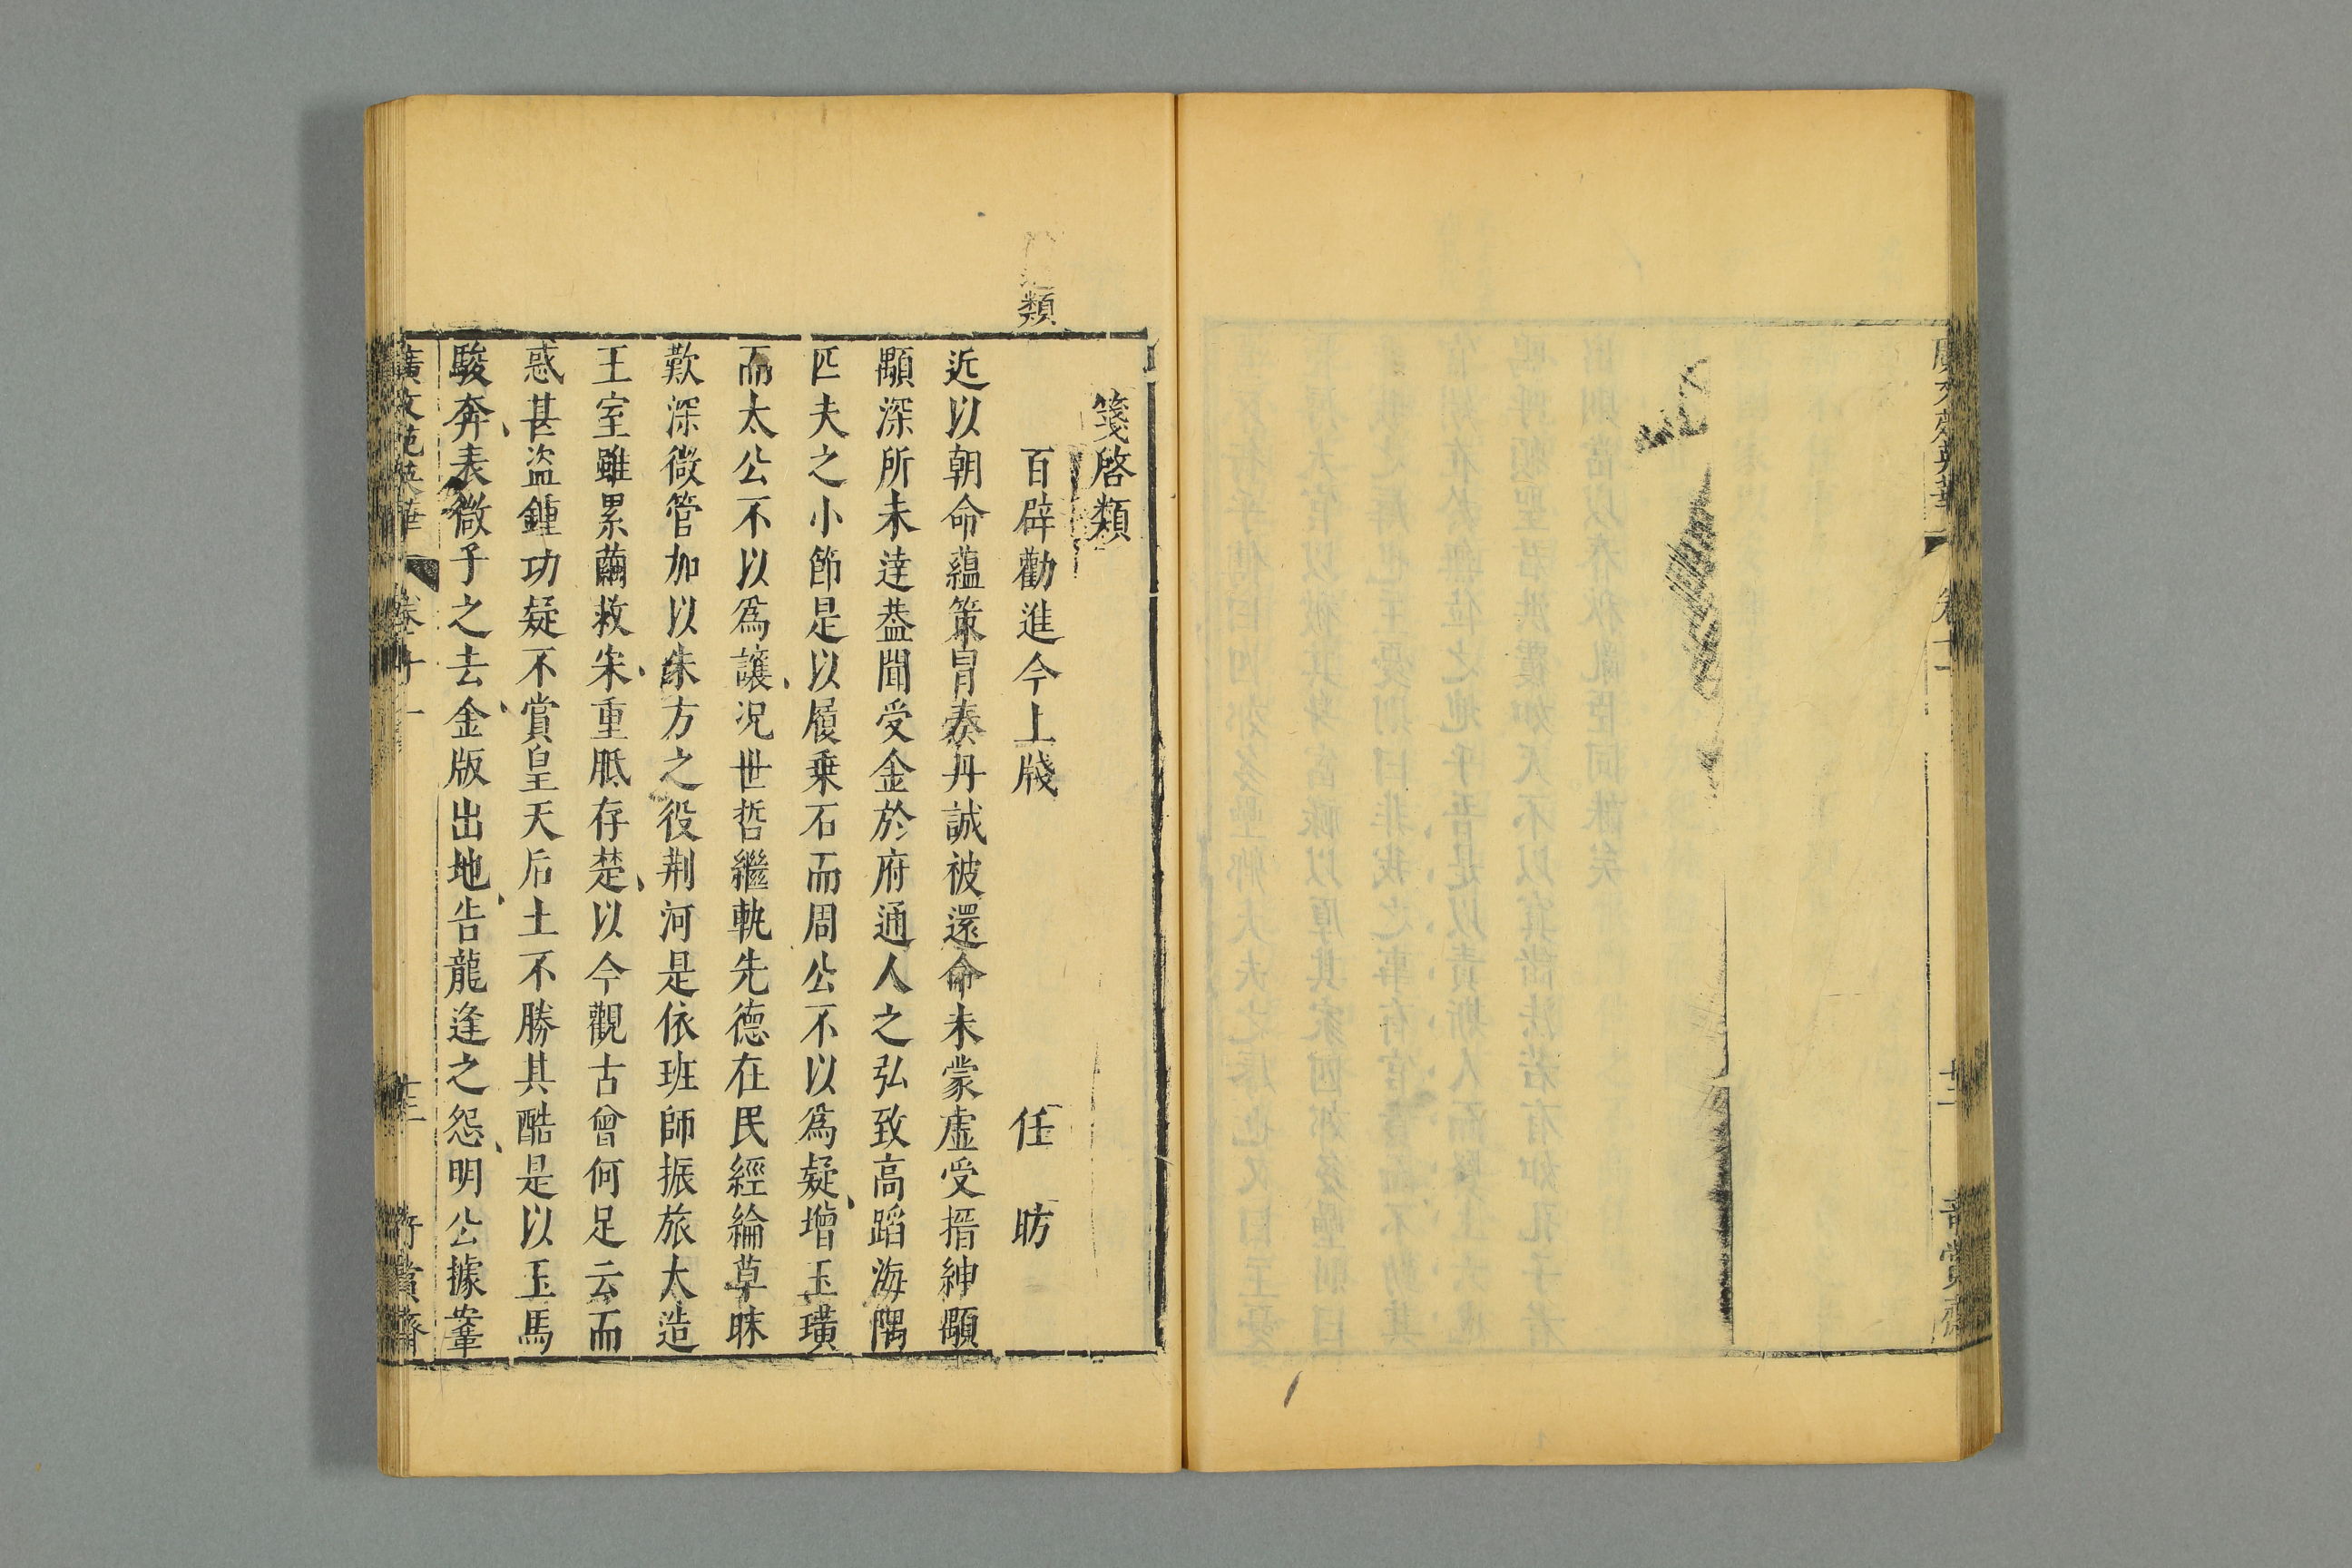 箋啓類
類
百辟勸進今上牋　任昉
近以朝命蘊策冐奏丹誠被還命未蒙虛受搢紳顒
顒深所未達葢聞受金於府通人之弘致高蹈海隅
匹夫之小節是以履乗石而周公不以爲疑增玉璜
而太公不以爲讓况世哲繼軌先德在民經綸草昧
歎深微管加以朱方之役荆河是依班師振旅大造
王室雖累繭救宋重胝存楚以今觀古曾何足云而
惑甚盜鍾功疑不賞皇天后土不勝其酷是以玉馬
駿奔表微子之去金版出地告龍逢之怨明公據鞌
廣文苑英華　卷十一　奇賞齋